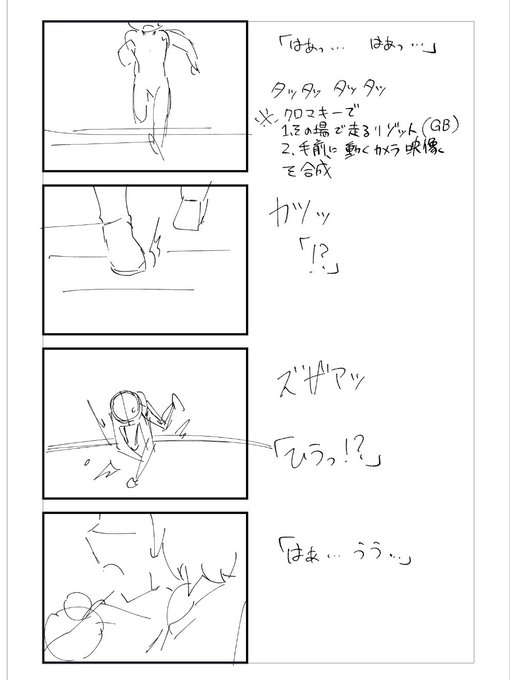 「はあっ… はあっ…」
タッタッ タッタッ
※クロマキーで
1.その場で走るリゾット(GB)
2.手前に動くカメラ映像
を合成
ガッッ
「!?」
ズザアッ
「ひうっ!?」
「はぁ… うう…」